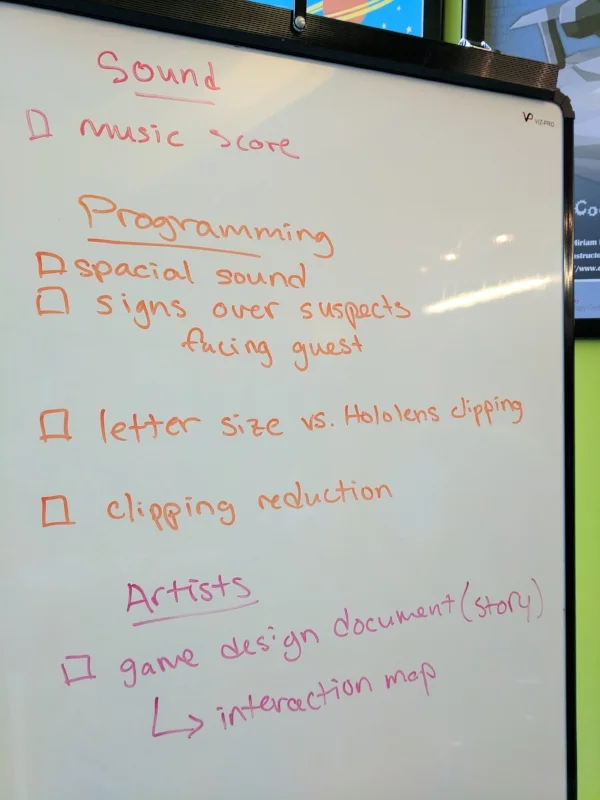 Sound
music score
VIZ-PRO
Programming
spacial sound
signs over suspects
facing guest
letter size vs. Hololens clipping
clipping reduction
Artists
game design document (story)
interaction map
Co